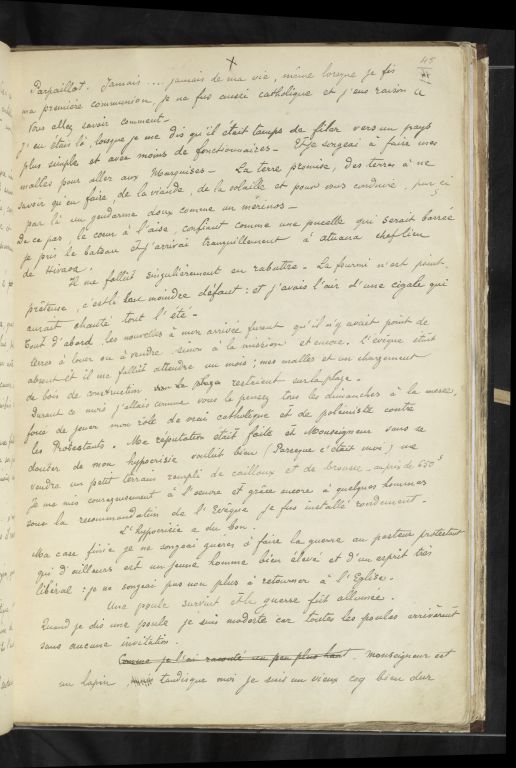 X
45
Parpaillot. Jamais ... jamais de ma vie, même lorsque je fis
ma première communion, je ne fus aussi catholique et j'eus raison
Vous allez savoir comment.
J'en étais là, lorsque je me dis qu'il était temps de filer vers un pays
plus simple et avec moins de fonctionnaires. Et je songeai à faire mes
malles pour aller aux Marquises. La terre promise, des terres à ne
savoir qu'en faire, de la viande, de la volaille et pour vous conduire, par ci
par là un gendarme doux comme un mérinos.
De ce pas, le coeur à l'aise, confiant comme une pucelle qui serait barrée
je pris le bateau et j'arrivai tranquillement à Atuana chef lieu
de Hivaoa.
Il me fallut singulièrement en rabattre. La fourmi n'est point
prêteuse, c'est le moindre défaut : et j'avais l'air d'une cigale qui
aurait chanté tout l'été.
Tout d'abord les nouvelles à mon arrivée furent qu'il n'y avait point de
terres à louer ou à vendre sinon à la mission et encore. L'évêque était
absent et il me fallut attendre un mois ; mes malles et un chargement
de bois de construction restèrent sur la plage.
Durant ce mois j'allais comme vous le pensez tous les dimanches à la messe,
forcé de jouer mon rôle de vrai catholique et de polémiste contre
les Protestants. Ma réputation était faite et Monseigneur sans se
douter de mon hypocrisie voulut bien (Parceque c'était moi) me
vendre un petit terrain rempli de cailloux et de brousse au prix de 650
Je me mis courageusement à l'oeuvre et grâce encore à quelques hommes
sous la recommandation de l'évêque je fus installé rondement.
L'hypocrisie a du bon.
Ma case finie je ne songeai guères à faire la guerre au pasteur protestant
qui d'ailleurs est un jeune homme bien élevé et d'un esprit très
libéral : je ne songeai pas non plus à retourner à l'Eglise.
Une poule survint et la guerre fut allumée.
Quand je dis une poule je suis modeste car toutes les poules arrivèrent
sans aucune invitation.
Comme je l'ai raconté un peu plus haut. Monseigneur est
un lapin tandisque moi je suis un vieux coq bien dur